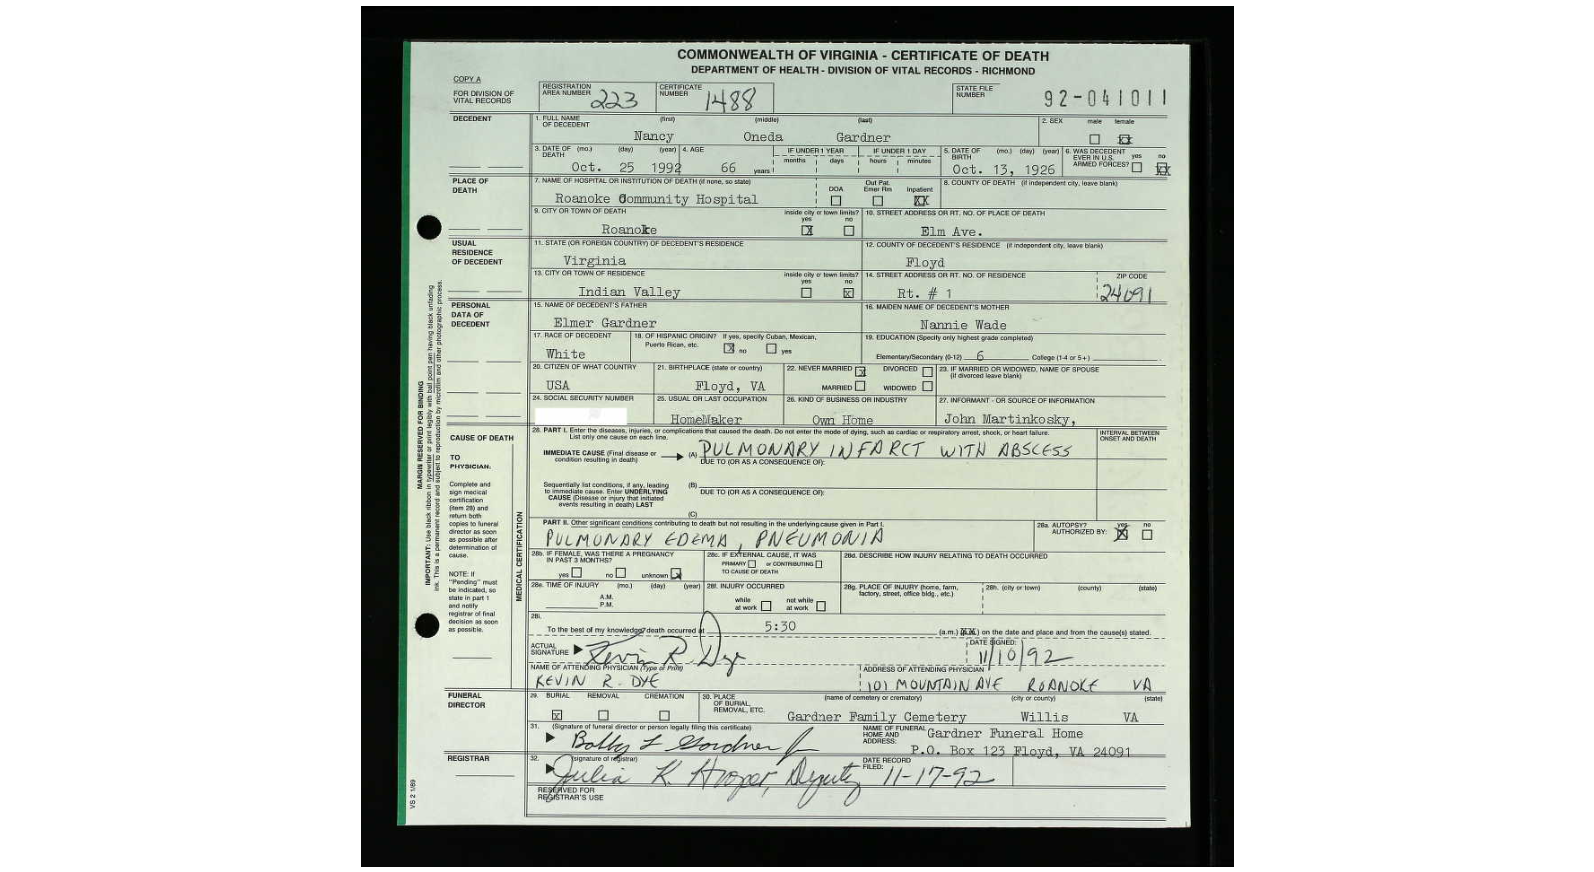 COMMONWEALTH OF VIRGINIA - CERTIFICATE OF DEATH
DEPARTMENT OF HEALTH - DIVISION OF VITAL RECORDS - RICHMOND
COPY A
FOR DIVISION OF VITAL RECORDS
REGISTRATION AREA NUMBER 223
CERTIFICATE NUMBER 1488
STATE FILE NUMBER 92-041011
DECEDENT
1. FULL NAME OF DECEDENT (first) (middle) (last)
Nancy Oneda Gardner
2. SEX male female XX
3. DATE OF DEATH (mo.) (day) (year)
Oct. 25 1992
4. AGE
66 years
IF UNDER 1 YEAR
months days
IF UNDER 1 DAY
hours minutes
5. DATE OF BIRTH (mo.) (day) (year)
Oct. 13, 1926
6. WAS DECEDENT EVER IN U.S. ARMED FORCES? yes no XX
PLACE OF DEATH
7. NAME OF HOSPITAL OR INSTITUTION OF DEATH (if none, so state)
Roanoke Community Hospital
DOA
Out Pat. Emer Rm
Inpatient XX
8. COUNTY OF DEATH (if independent city, leave blank)
9. CITY OR TOWN OF DEATH
Roanoke
inside city or town limits? yes no
X
10. STREET ADDRESS OR RT. NO. OF PLACE OF DEATH
Elm Ave.
USUAL RESIDENCE OF DECEDENT
11. STATE (OR FOREIGN COUNTRY) OF DECEDENT'S RESIDENCE
Virginia
12. COUNTY OF DECEDENT'S RESIDENCE (if independent city, leave blank)
Floyd
13. CITY OR TOWN OF RESIDENCE
Indian Valley
inside city or town limits? yes no
x
14. STREET ADDRESS OR RT. NO. OF RESIDENCE
Rt. # 1
ZIP CODE
24091
PERSONAL DATA OF DECEDENT
15. NAME OF DECEDENT'S FATHER
Elmer Gardner
16. MAIDEN NAME OF DECEDENT'S MOTHER
Nannie Wade
17. RACE OF DECEDENT
White
18. OF HISPANIC ORIGIN? If yes, specify Cuban, Mexican, Puerto Rican, etc.
X no yes
19. EDUCATION (Specify only highest grade completed)
Elementary/Secondary (0-12) 6 College (1-4 or 5+)
20. CITIZEN OF WHAT COUNTRY
USA
21. BIRTHPLACE (state or country)
Floyd, VA
22. NEVER MARRIED X DIVORCED
MARRIED WIDOWED
23. IF MARRIED OR WIDOWED, NAME OF SPOUSE (if divorced leave blank)
24. SOCIAL SECURITY NUMBER
25. USUAL OR LAST OCCUPATION
HomeMaker
26. KIND OF BUSINESS OR INDUSTRY
Own Home
27. INFORMANT - OR SOURCE OF INFORMATION
John Martinkosky,
CAUSE OF DEATH
TO PHYSICIAN:
Complete and
sign medical
certification
(item 28) and
return both
copies to funeral
director as soon
as possible after
determination of
cause.
NOTE: If
"Pending" must
be indicated, so
state in part 1
and notify
registrar of final
decision as soon
as possible.
MEDICAL CERTIFICATION
28. PART I. Enter the diseases, injuries, or complications that caused the death. Do not enter the mode of dying, such as cardiac or respiratory arrest, shock, or heart failure.
List only one cause on each line.
INTERVAL BETWEEN ONSET AND DEATH
IMMEDIATE CAUSE (Final disease or condition resulting in death)
(A) PULMONARY INFARCT WITH ABSCESS
DUE TO (OR AS A CONSEQUENCE OF):
Sequentially list conditions, if any, leading to immediate cause. Enter UNDERLYING CAUSE (Disease or injury that initiated events resulting in death) LAST
(B)
DUE TO (OR AS A CONSEQUENCE OF):
(C)
PART II. Other significant conditions contributing to death but not resulting in the underlying cause given in Part I.
PULMONARY EDEMA, PNEUMONIA
28a. AUTOPSY? AUTHORIZED BY: yes no
X
28b. IF FEMALE, WAS THERE A PREGNANCY IN PAST 3 MONTHS?
yes no unknown X
28c. IF EXTERNAL CAUSE, IT WAS
PRIMARY or CONTRIBUTING
TO CAUSE OF DEATH
28d. DESCRIBE HOW INJURY RELATING TO DEATH OCCURRED
28e. TIME OF INJURY (mo.) (day) (year)
A.M.
P.M.
28f. INJURY OCCURRED
while at work not while at work
28g. PLACE OF INJURY (home, farm, factory, street, office bldg., etc.)
28h. (city or town) (county) (state)
28i.
To the best of my knowledge, death occurred at 5:30 (a.m.) (p.m.) on the date and place and from the cause(s) stated.
ACTUAL SIGNATURE Kevin R. Dye
DATE SIGNED: 11/10/92
NAME OF ATTENDING PHYSICIAN (Type or Print)
KEVIN R. DYE
ADDRESS OF ATTENDING PHYSICIAN
101 MOUNTAIN AVE ROANOKE VA
FUNERAL DIRECTOR
29. BURIAL REMOVAL CREMATION
x
30. PLACE OF BURIAL, REMOVAL, ETC. (name of cemetery or crematory) (city or county) (state)
Gardner Family Cemetery Willis VA
31. (Signature of funeral director or person legally filing this certificate)
Bobby L Gardner Jr
NAME OF FUNERAL HOME AND ADDRESS:
Gardner Funeral Home
P.O. Box 123 Floyd, VA 24091
REGISTRAR
32. (signature of registrar)
Julia K. Hooper, Deputy
DATE RECORD FILED: 11-17-92
RESERVED FOR REGISTRAR'S USE
MARGIN RESERVED FOR BINDING
IMPORTANT: Use black ribbon in typewriter or print legibly with ball point pen having black unfading
ink. This is a permanent record and subject to reproduction by microfilm and other photographic process.
VS 2 1/89